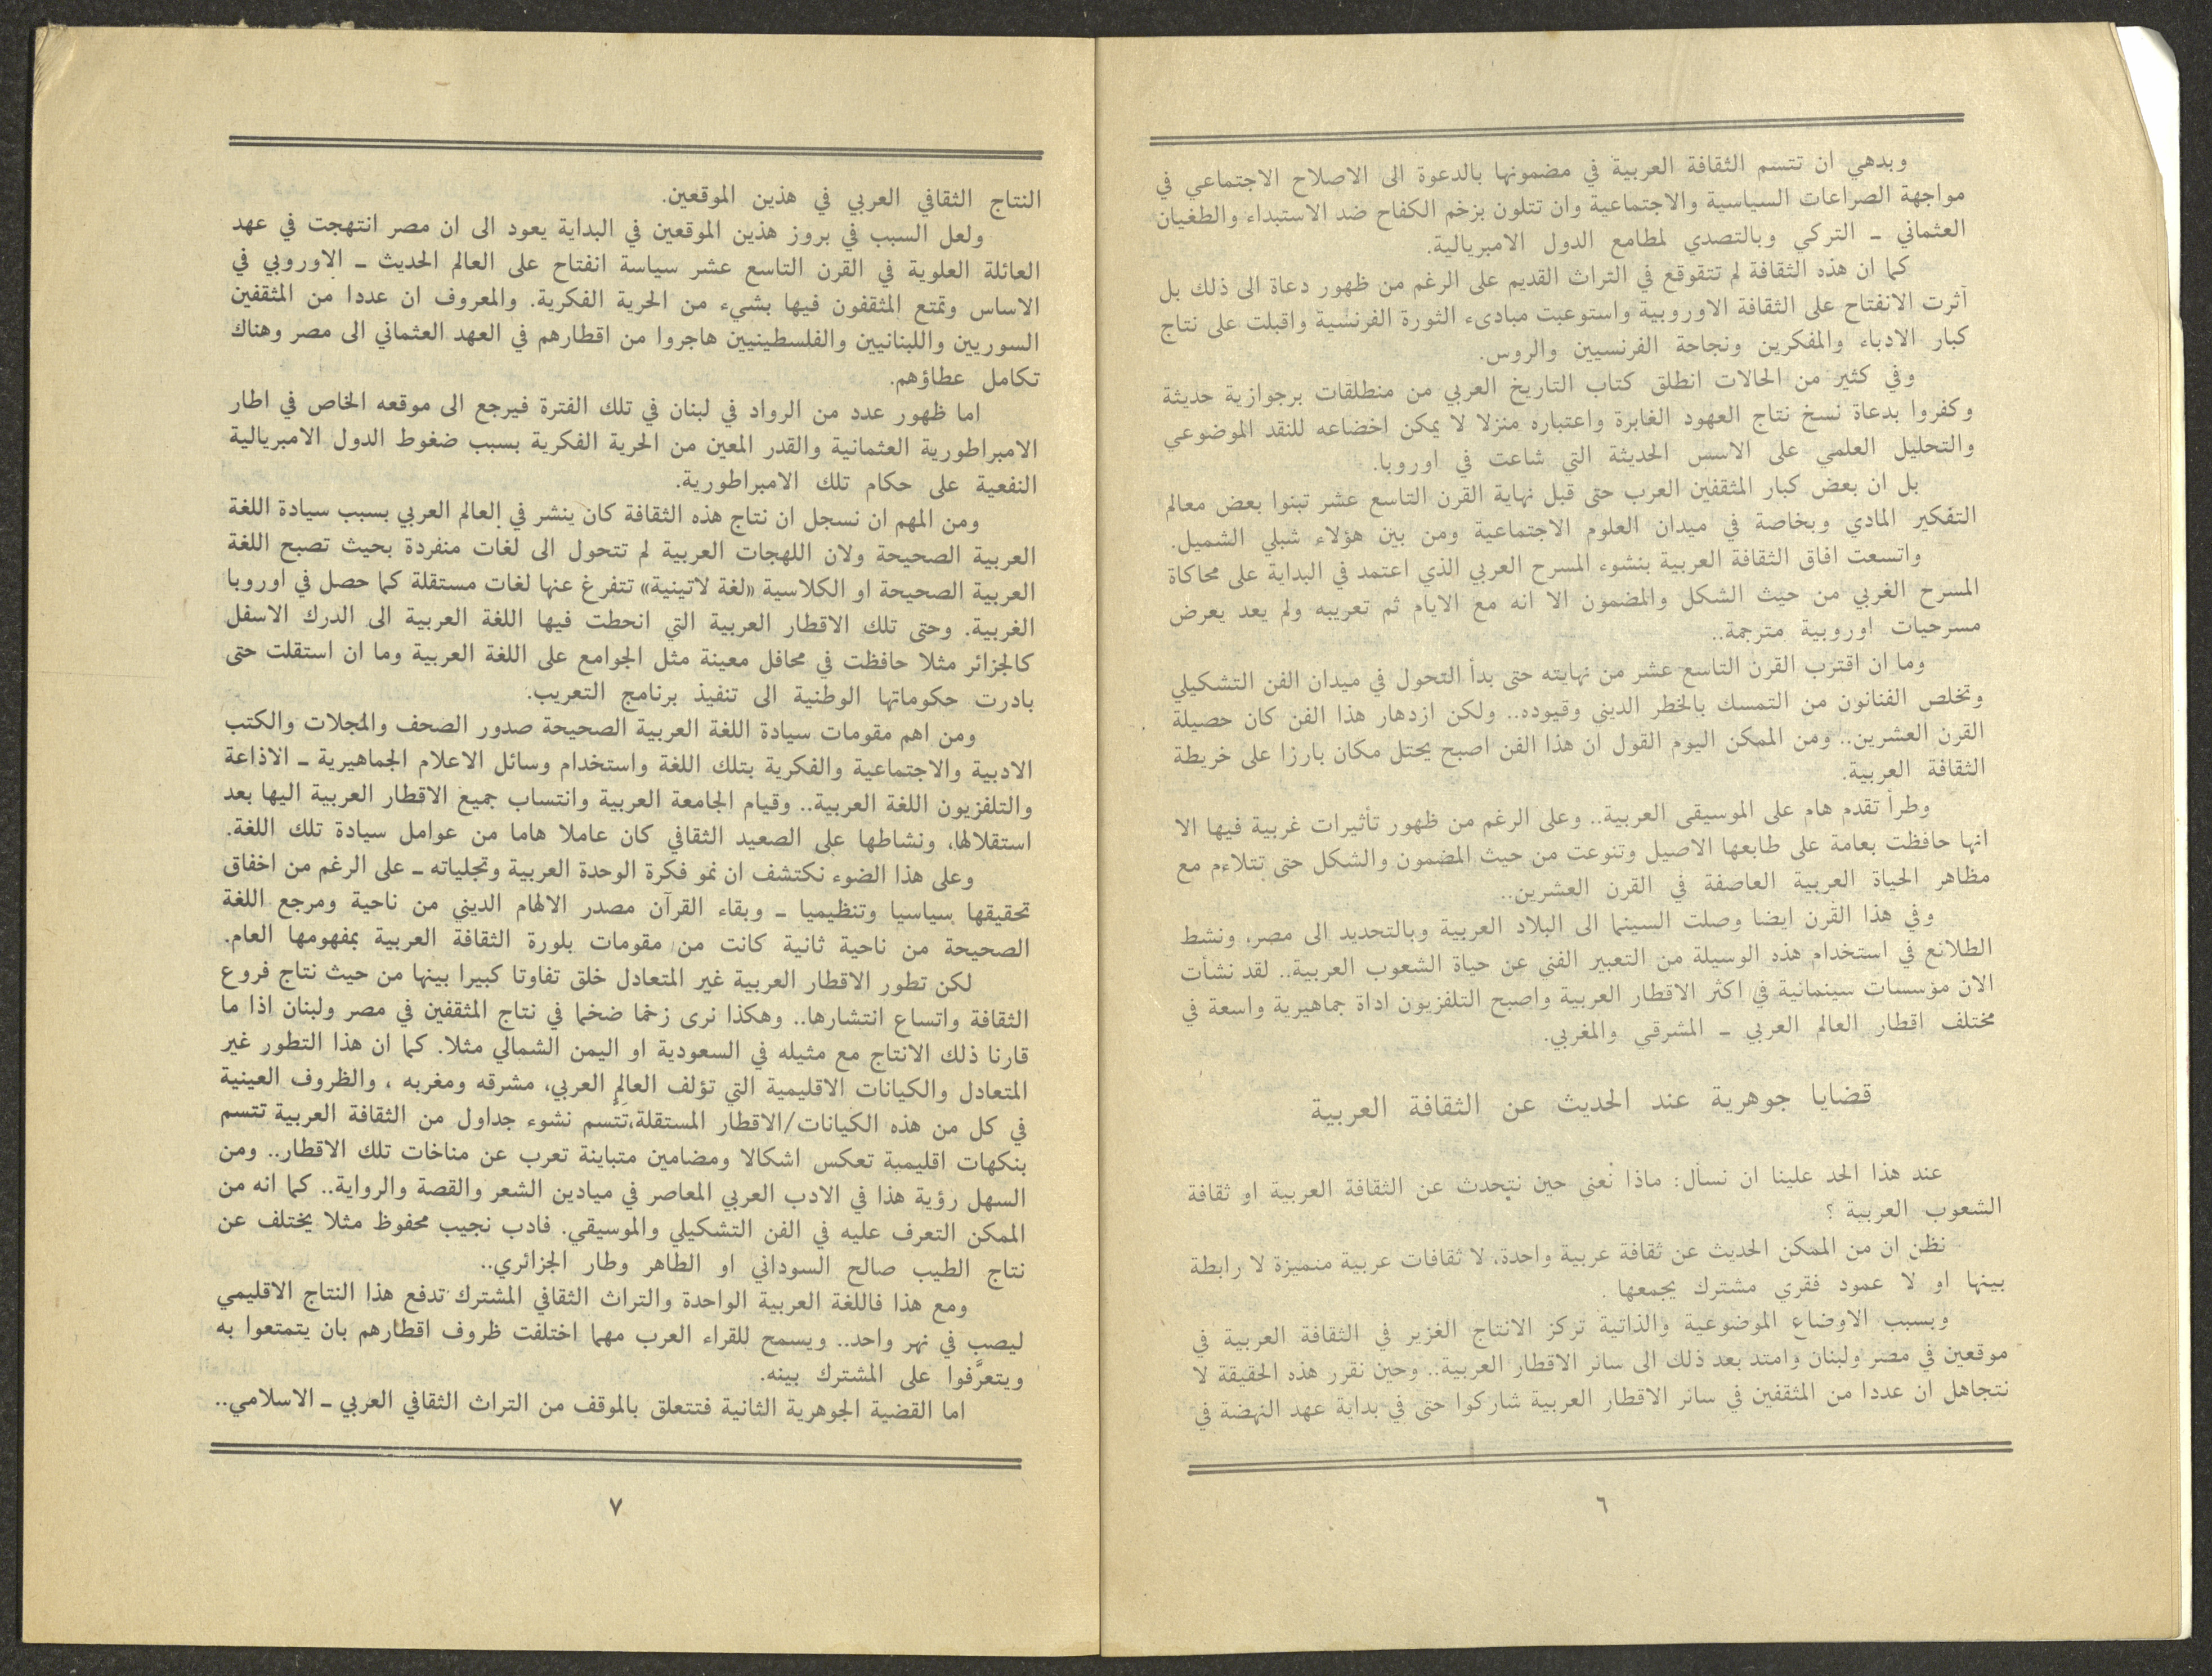 وبدهي ان تتسم الثقافة العربية في مضمونها بالدعوة الى الاصلاح الاجتماعي في
مواجهة الصراعات السياسية والاجتماعية وان تتلون بزخم الكفاح ضد الاستبداء والطغيان
العثماني ــ التركي وبالتصدي لمطامع الدول الامبريالية.
كما ان هذه الثقافة لم تتقوقع في التراث القديم على الرغم من ظهور دعاة الى ذلك بل
آثرت الانفتاح على الثقافة الاوروبية واستوعبت مبادىء الثورة الفرنسية واقبلت على نتاج
كبار الادباء والمفكرين ونجاحة الفرنسيين والروس.
وفي كثير من الحالات انطلق كتاب التاريخ العربي من منطلقات برجوازية حديثة
وكفروا بدعاة نسخ نتاج العهود الغابرة واعتباره منزلا لا يمكن اخضاعه للنقد الموضوعي
والتحليل العلمي على الاسس الحديثة التي شاعت في اوروبا.
بل ان بعض كبار المثقفين العرب حتى قبل نهاية القرن التاسع عشر تبنوا بعض معالم
التفكير المادي وبخاصة في ميدان العلوم الاجتماعية ومن بين هؤلاء شبلي الشميل.
واتسعت افاق الثقافة العربية بنشوء المسرح العربي الذي اعتمد في البداية على محاكاة
المسرح الغربي من حيث الشكل والمضمون الا انه مع الايام ثم تعريبه ولم يعد يعرض
مسرحيات اوروبية مترجمة..
وما ان اقترب القرن التاسع عشر من نهايته حتى بدأ التحول في ميدان الفن التشكيلي
وتخلص الفنانون من التمسك بالخطر الديني وقيوده.. ولكن ازدهار هذا الفن كان حصيلة
القرن العشرين.. ومن الممكن اليوم القول ان هذا الفن اصبح يحتل مكان بارزا على خريطة
الثقافة العربية.
وطرأ تقدم هام على الموسيقى العربية.. وعلى الرغم من ظهور تأثيرات غربية فيها الا
انها حافظت بعامة على طابعها الاصيل وتنوعت من حيث المضمون والشكل حتى تتلاءم مع
مظاهر الحياة العربية العاصفة في القرن العشرين..
وفي هذا القرن ايضا وصلت السينما الى البلاد العربية وبالتحديد الى مصر، ونشط
الطلائع في استخدام هذه الوسيلة من التعبير الفني عن حياة الشعوب العربية.. لقد نشأت
الان مؤسسات سينمائية في اكثر الاقطار العربية واصبح التلفزيون اداة جماهيرية واسعة في
مختلف اقطار العالم العربي ــ المشرقي والمغربي.
قضايا جوهرية عند الحديث عن الثقافة العربية
عند هذا الحد علينا ان نسأل: ماذا نُعني حين نتحدث عن الثقافة العربية او ثقافة
الشعوب العربية ؟
نظن ان من الممكن الحديث عن ثقافة عربية واحدة، لا ثقافات عربية متميزة لا رابطة
بينها او لا عمود فقري مشترك يجمعها .
وبسبب الاوضاع الموضوعية والذاتية تركز الانتاج الغزير في الثقافة العربية في
موقعين في مصر ولبنان وامتد بعد ذلك الى سائر الاقطار العربية.. وحين نقرر هذه الحقيقة لا
نتجاهل ان عددا من المثقفين في سائر الاقطار العربية شاركوا حتى في بداية عهد النهضة في
٦
النتاج الثقافي العربي في هذين الموقعين.
ولعل السبب في بروز هذين الموقعين في البداية يعود الى ان مصر انتهجت في عهد
العائلة العلوية في القرن التاسع عشر سياسة انفتاح على العالم الحديث ــ الاوروبي في
الاساس وتمتع المثقفون فيها بشيء من الحرية الفكرية. والمعروف ان عددا من المثقفين
السوريين واللبنانيين والفلسطينيين هاجروا من اقطارهم في العهد العثماني الى مصر وهناك
تكامل عطاؤهم.
اما ظهور عدد من الرواد في لبنان في تلك الفترة فيرجع الى موقعه الخاص في اطار
الامبراطورية العثمانية والقدر المعين من الحرية الفكرية بسبب ضغوط الدول الامبريالية
النفعية على حكام تلك الامبراطورية.
ومن المهم ان نسجل ان نتاج هذه الثقافة كان ينشر في العالم العربي بسبب سيادة اللغة
العربية الصحيحة ولان اللهجات العربية لم تتحول الى لغات منفردة بحيث تصبح اللغة
العربية الصحيحة او الكلاسية «لغة لاتينية» تتفرغ عنها لغات مستقلة كما حصل في اوروبا
الغربية. وحتى تلك الاقطار العربية التي انحطت فيها اللغة العربية الى الدرك الاسفل
كالجزائر مثلا حافظت في محافل معينة مثل الجوامع على اللغة العربية وما ان استقلت حتى
بادرت حكوماتها الوطنية الى تنفيذ برنامج التعريب.
ومن اهم مقومات سيادة اللغة العربية الصحيحة صدور الصحف والمجلات والكتب
الادبية والاجتماعية والفكرية بتلك اللغة واستخدام وسائل الاعلام الجماهيرية ــ الاذاعة
والتلفزيون اللغة العربية.. وقيام الجامعة العربية وانتساب جميع الاقطار العربية اليها بعد
استقلالها، ونشاطها على الصعيد الثقافي كان عاملا هاما من عوامل سيادة تلك اللغة.
وعلى هذا الضوء نكتشف ان نمو فكرة الوحدة العربية وتجلياته ــ على الرغم من اخفاق
تحقيقها سياسيا وتنظيميا ــ وبقاء القرآن مصدر الالهام الديني من ناحية ومرجع اللغة
الصحيحة من ناحية ثانية كانت من مقومات بلورة الثقافة العربية بمفهومها العام.
لكن تطور الاقطار العربية غير المتعادل خلق تفاوتا كبيرا بينها من حيث نتاج فروع
الثقافة واتساع انتشارها.. وهكذا نرى زخما ضخما في نتاج المثقفين في مصر ولبنان اذا ما
قارنا ذلك الانتاج مع مثيله في السعودية او اليمن الشمالي مثلا. كما ان هذا التطور غير
المتعادل والكيانات الاقليمية التي تؤلف العالم العربي، مشرقه ومغربه ، والظروف العينية
في كل من هذه الكيانات/الاقطار المستقلة،تتسم نشوء جداول من الثقافة العربية تتسم
بنكهات اقليمية تعكس اشكالا ومضامين متباينة تعرب عن مناخات تلك الاقطار.. ومن
السهل رؤية هذا في الادب العربي المعاصر في ميادين الشعر والقصة والرواية.. كما انه من
الممكن التعرف عليه في الفن التشكيلي والموسيقي. فادب نجيب محفوظ مثلا يختلف عن
نتاج الطيب صالح السوداني او الطاهر وطار الجزائري..
ومع هذا فاللغة العربية الواحدة والتراث الثقافي المشترك تدفع هذا النتاج الاقليمي
ليصب في نهر واحد.. ويسمح للقراء العرب مهما اختلفت ظروف اقطارهم بان يتمتعوا به
ويتعرَّفوا على المشترك بينه.
اما القضية الجوهرية الثانية فتتعلق بالموقف من التراث الثقافي العربي ــ الاسلامي..
٧